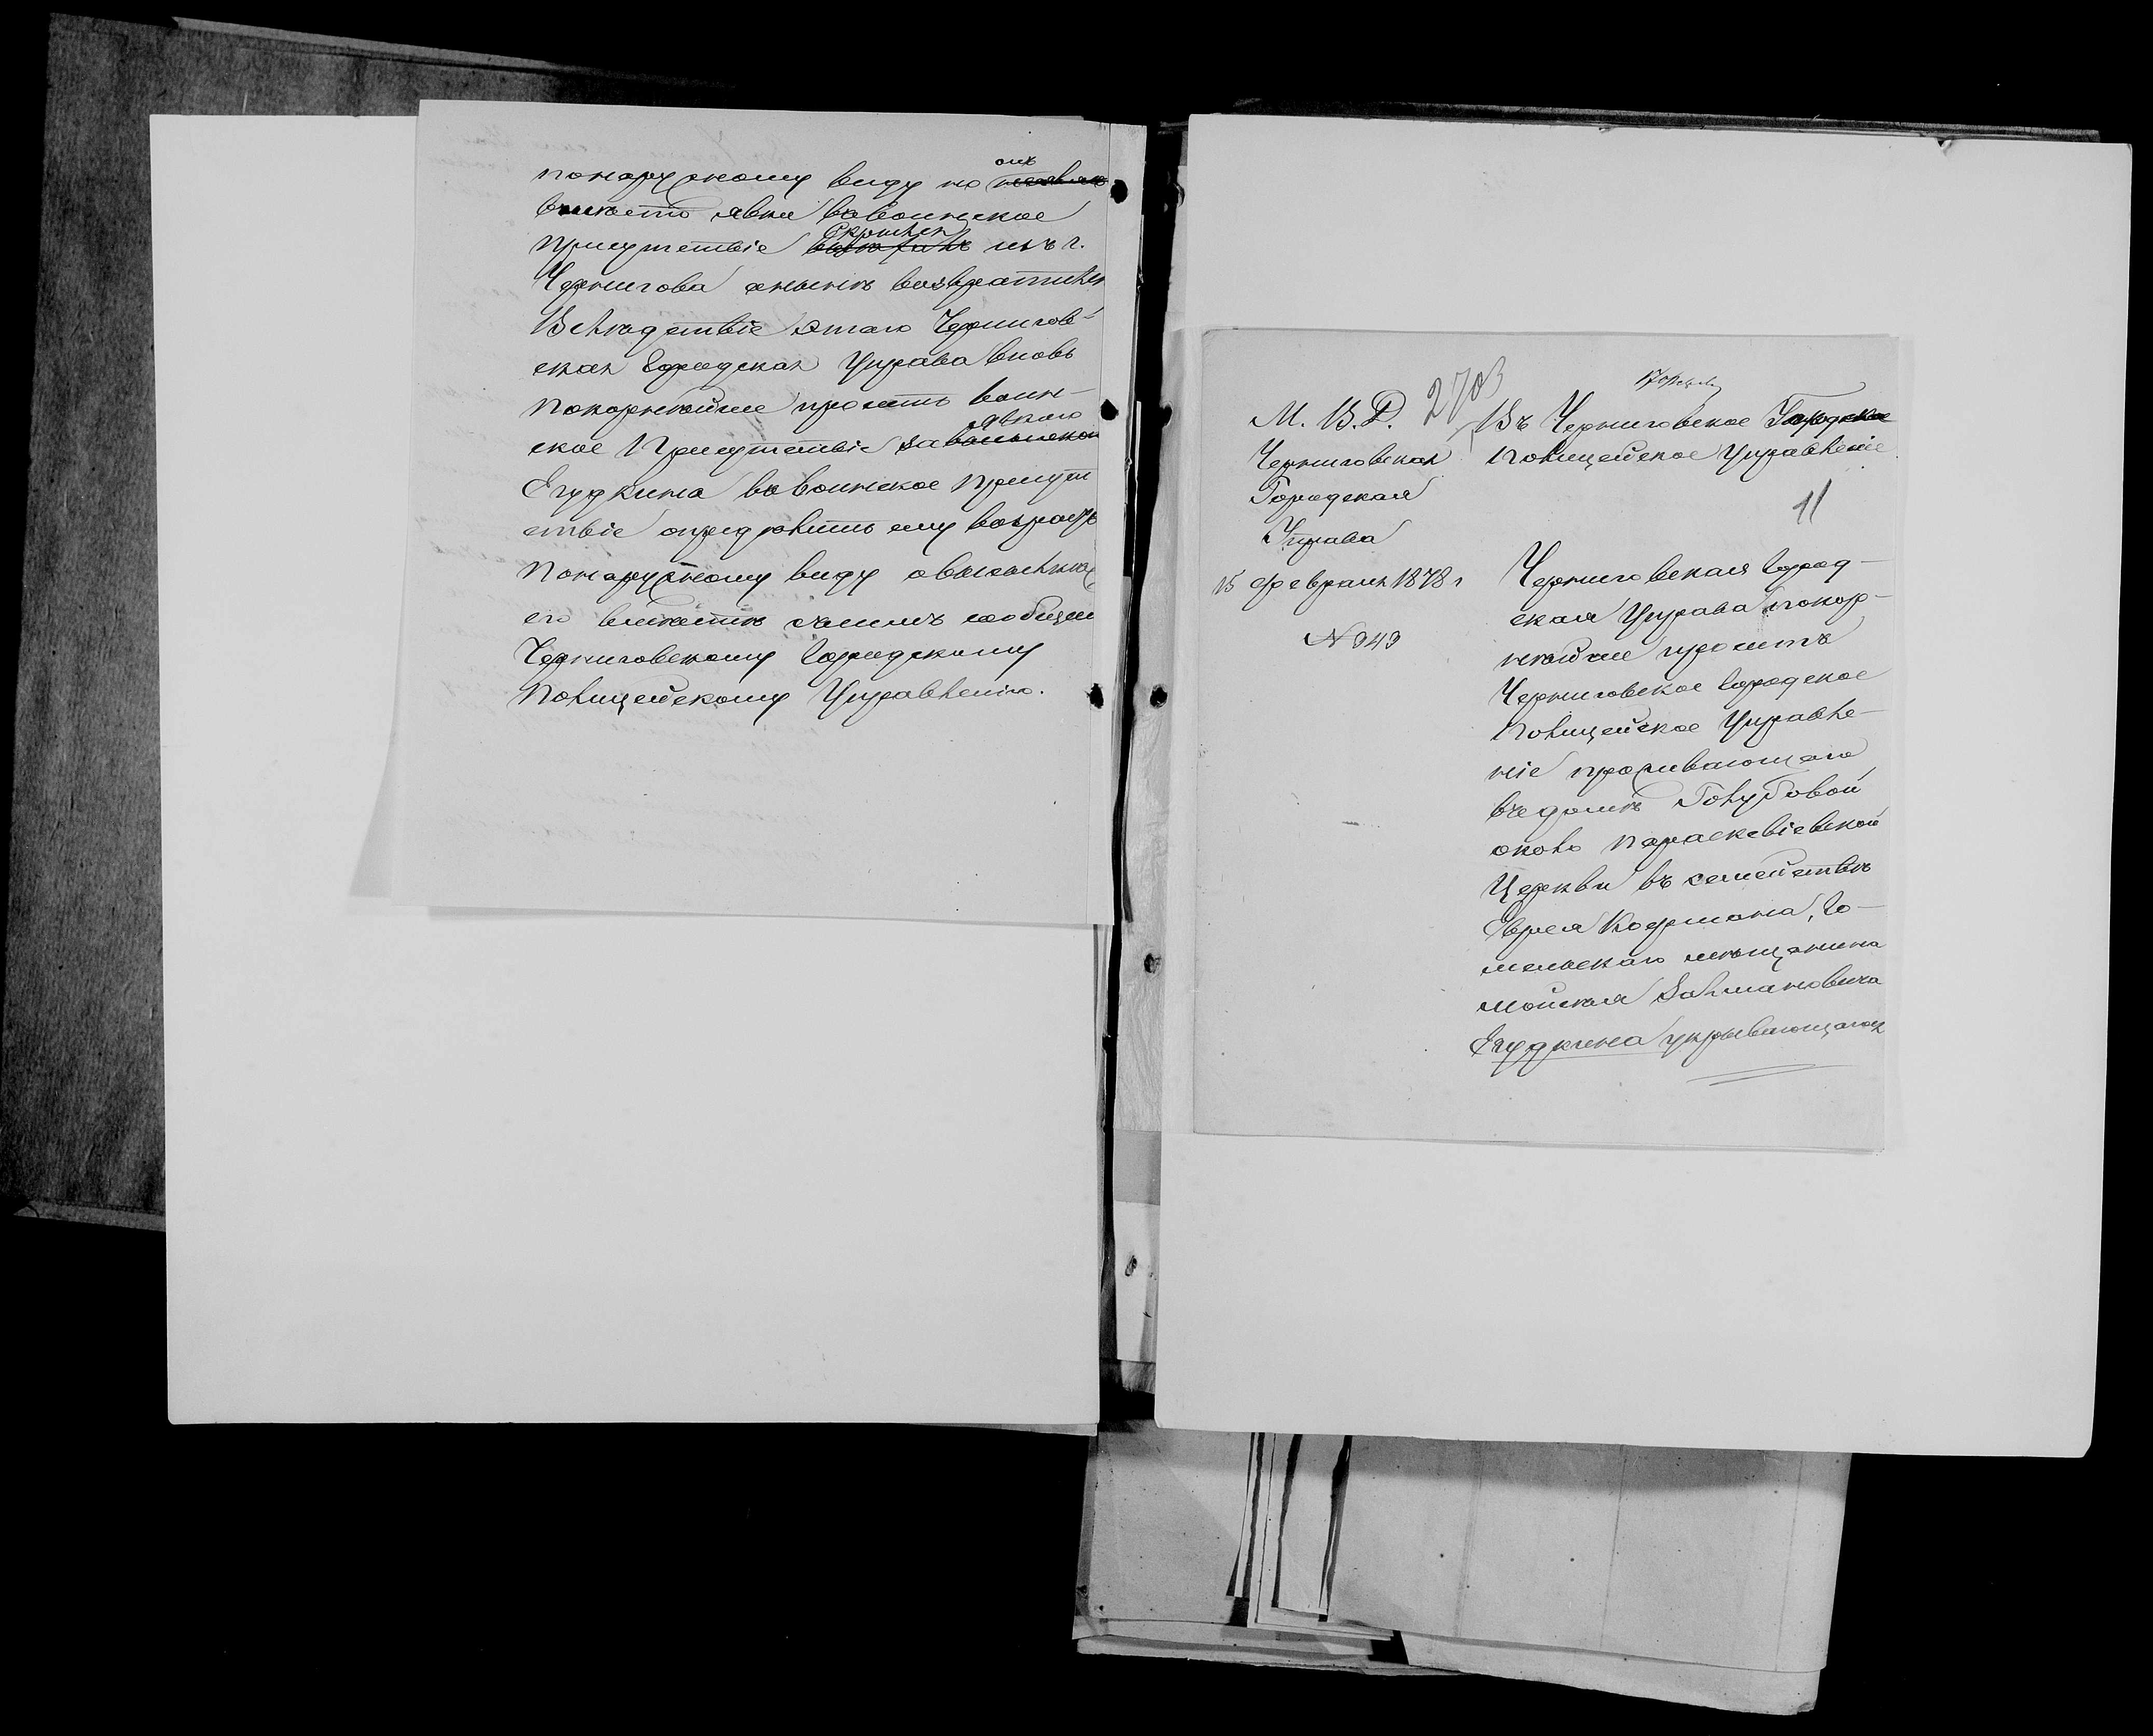 понаружному виду но онъ
вмѣсто явки въ Воинское
Присутствіе скрылся изъ г.
Чернигова а нынѣ возвратился
Вслѣдствіе этаго Чернигов-
ская Городская Управа вновь
Покорнѣйше проситъ Воин-
ское Присутствіе за явкою
Егудкина въ Воинское Присут
ствіе определить ему возрастъ
Понаружному виду
его вмѣстѣ съ симъ сообщен
Черниговскому Городскому
Полицейскому Управленію.
2703
17 февр.
М. В. Д.
Черниговская
Городская
Управа
15 февраля 1878 г
№ 949
Въ Черниговское Городское
Полицейское Управленіе
11
Черниговская Город-
ская Управа покор-
нѣйше проситъ
Черниговское Городское
Полицейское Управле-
ніе проживающаго
въ домѣ Голубовой
около Параскевіевской
Церкви въ семействѣ
Еврея Кофмана, Го-
мельскаго мѣщанина
Мойсея Залмановича
Егудкина укрывающагося